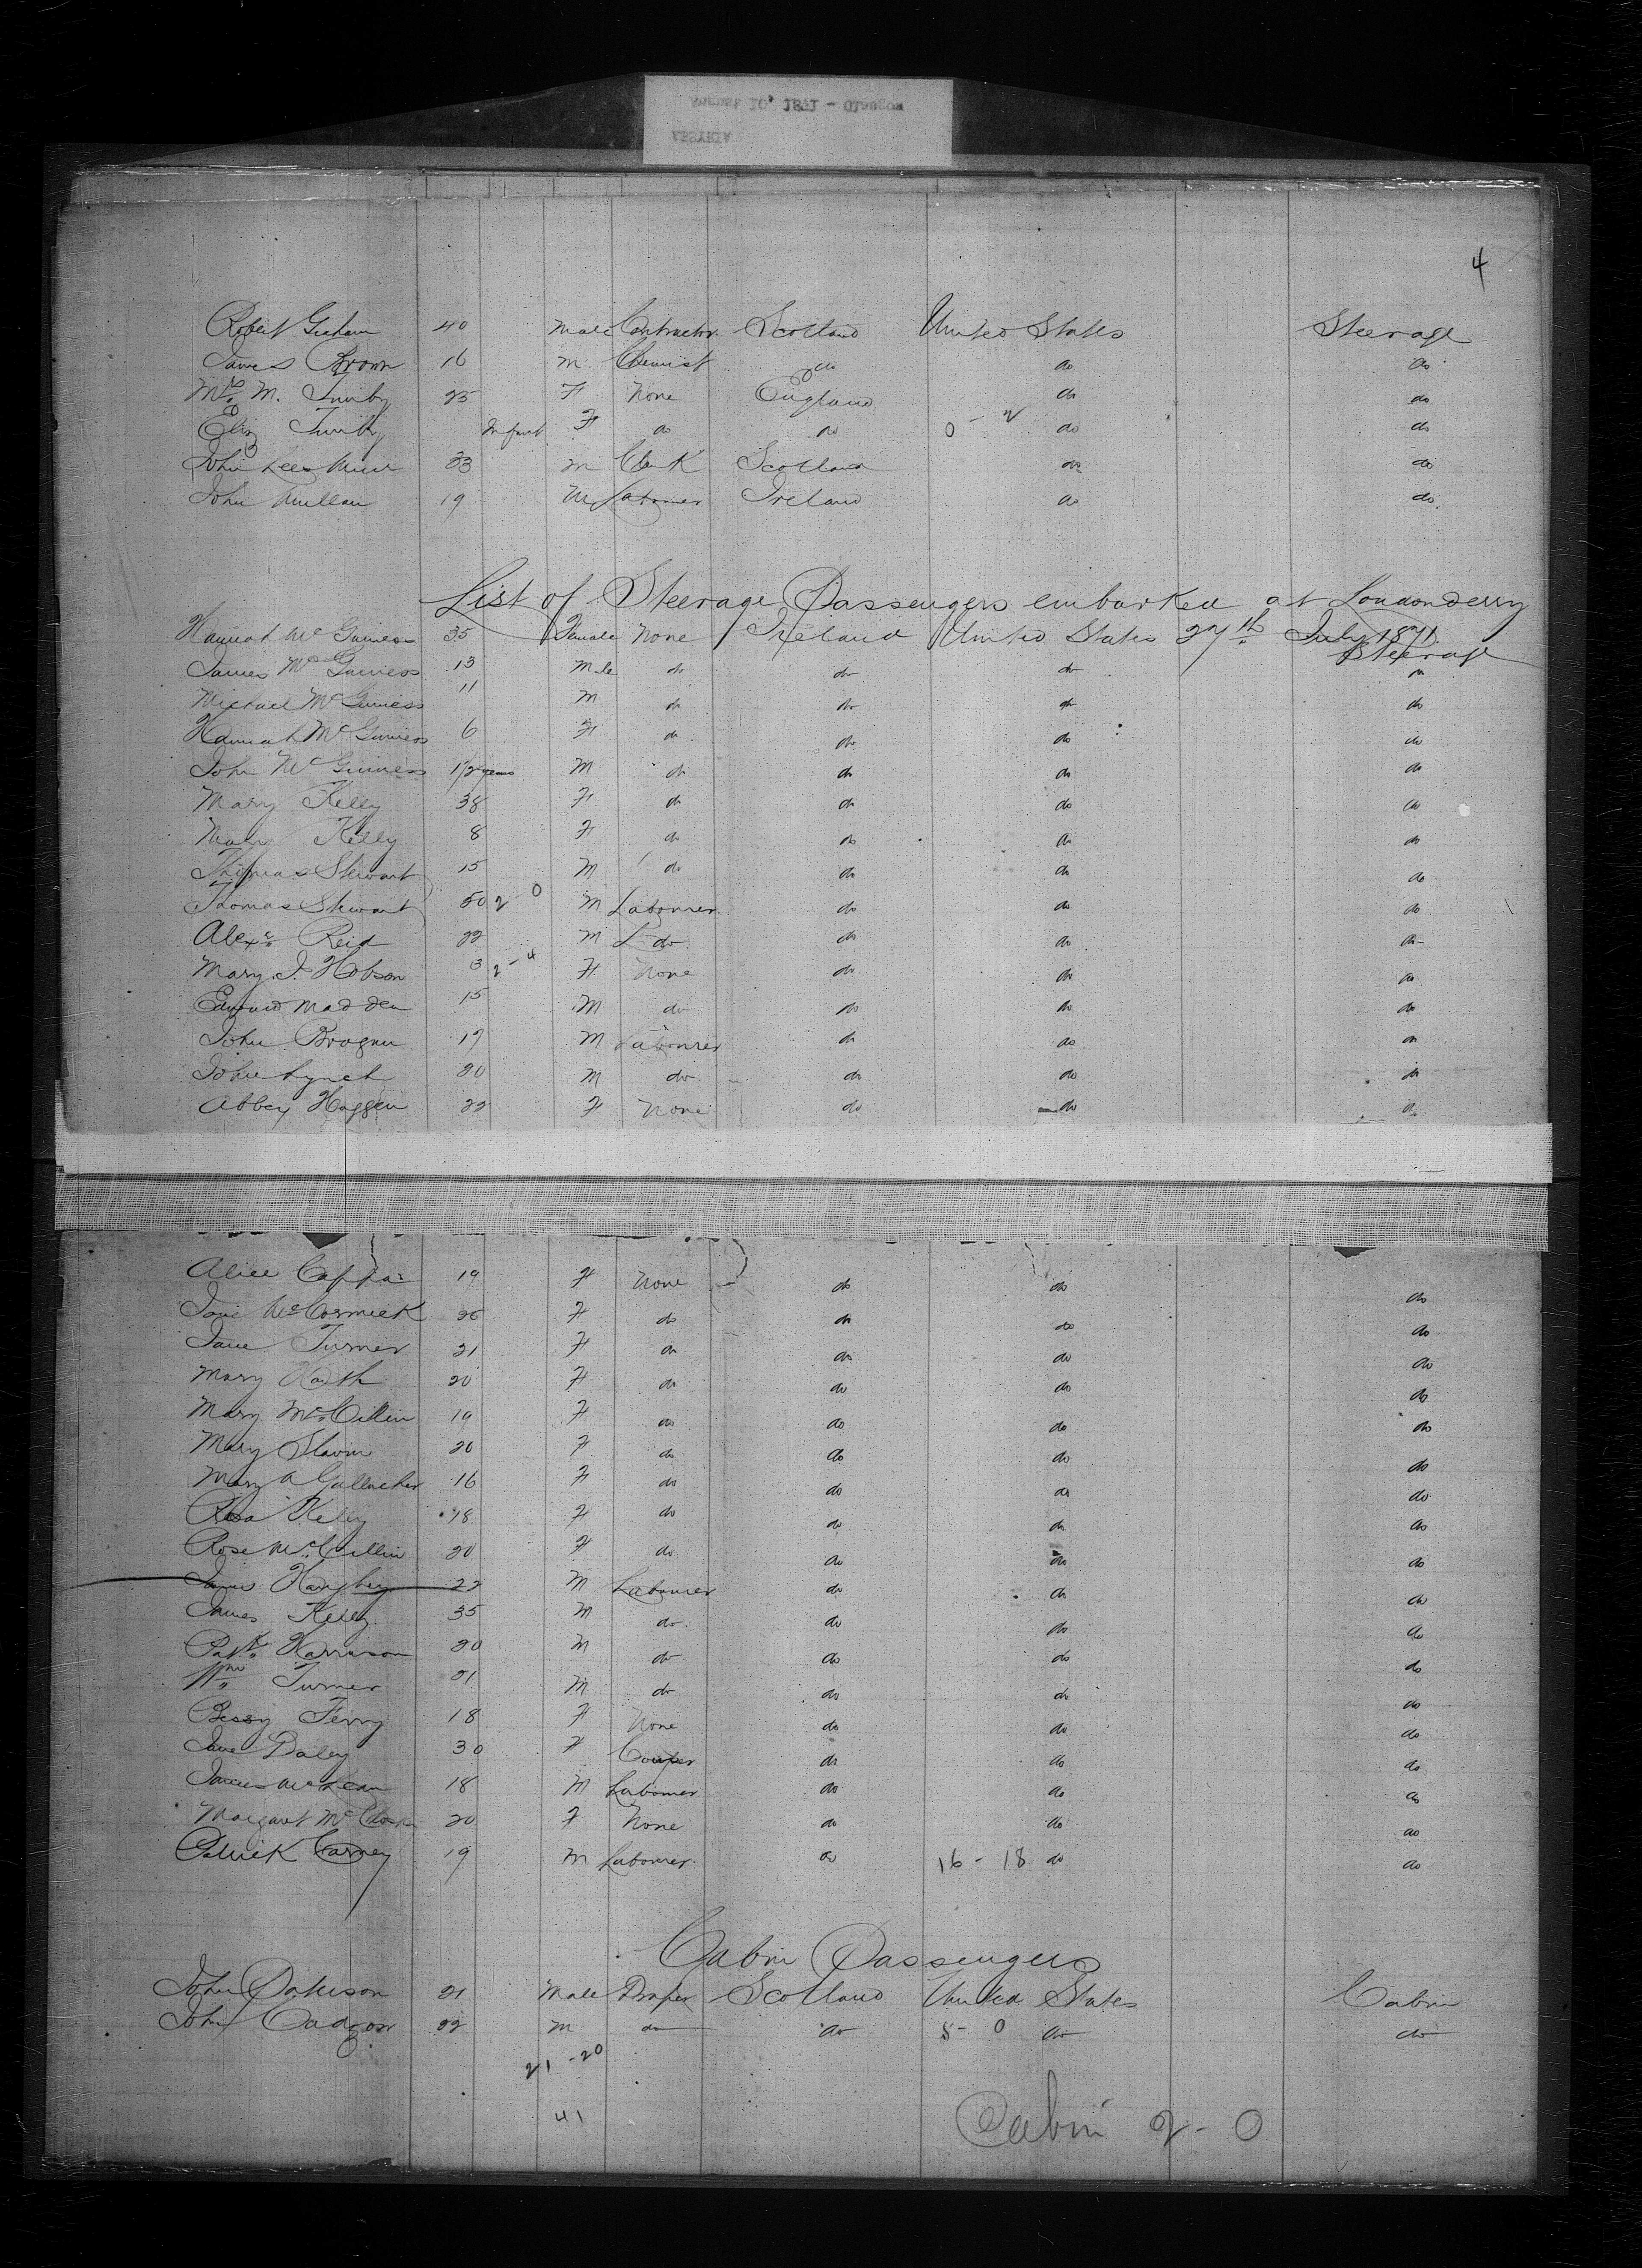 August 10, 1871 - Glasgow
ASSYRIA
4
Robert Graham 40 Male Contractor Scotland United States Steerage
James Brown 16 M Chemist do do do
Mrs. M. 25 F None England do do
Eliz Infant F do do 0 - 2 do do
John Lees Muir 33 M Clerk Scotland do do
John Mullan 19 M Labourer Ireland do do
List of Steerage Passengers embarked at Londonderry
27th July 1871.
Hannah McGuiness 35 Female None Ireland United States Steerage
James McGuiness 13 Male do do do do
Michael McGuiness 11 M do do do do
Hannah McGuiness 6 F do do do do
John McGuiness 1/2 years M do do do do
Mary Kelly 38 F do do do do
Mary Kelly 8 F do do do do
Thomas Stewart 15 M do do do do
Thomas Stewart 50 2 - 0 M Labourer do do do
Alexr. Reid 22 M L do do do do
Mary J. Hobson 3 2 - 4 F None do do do
Edward Madden 15 M do do do do
John Brogan 17 M Labourer do do do
John Lynch 20 M do do do do
Abbey Haggen 22 F None do do do
Alice 19 F None do do do
Jane McCormick 26 F do do do do
Jane Turner 21 F do do do do
Mary 20 F do do do do
Mary McCillin 19 F do do do do
Mary Slavin 20 F do do do do
Mary A Gallacher 16 F do do do do
Rosa Kelly 18 F do do do do
Rose McCullin 20 F do do do do
James 22 M Labourer do do do
James Kelly 35 M do do do do
Patk. Harrison 20 M do do do do
Wm. Turner 21 M do do do do
Bessy Ferry 18 F None do do do
Jane Daley 30 F do do do
James McLean 18 M Labourer do do do
Margaret 20 F None do do do
Patrick Carney 19 M Labourer do 16 - 18 do do
Cabin Passengers
John 21 Male Draper Scotland United States Cabin
John 22 M do do 5 - 0 do do
21 - 20
41
Cabin 2 - 0